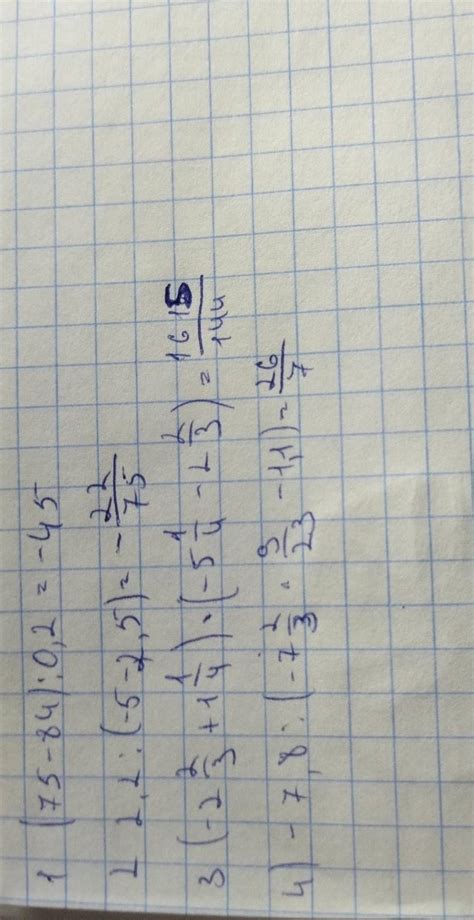 1 (75-84):0,2 = -45
2 2,2:(-5-2,5)= -22/75
3 (-2 2/3 +1 1/4)·(-5 1/4 -2 2/3)= 1615/144
4) -7,8:(-7 2/3 · 9/23 -1,1)= 26/7